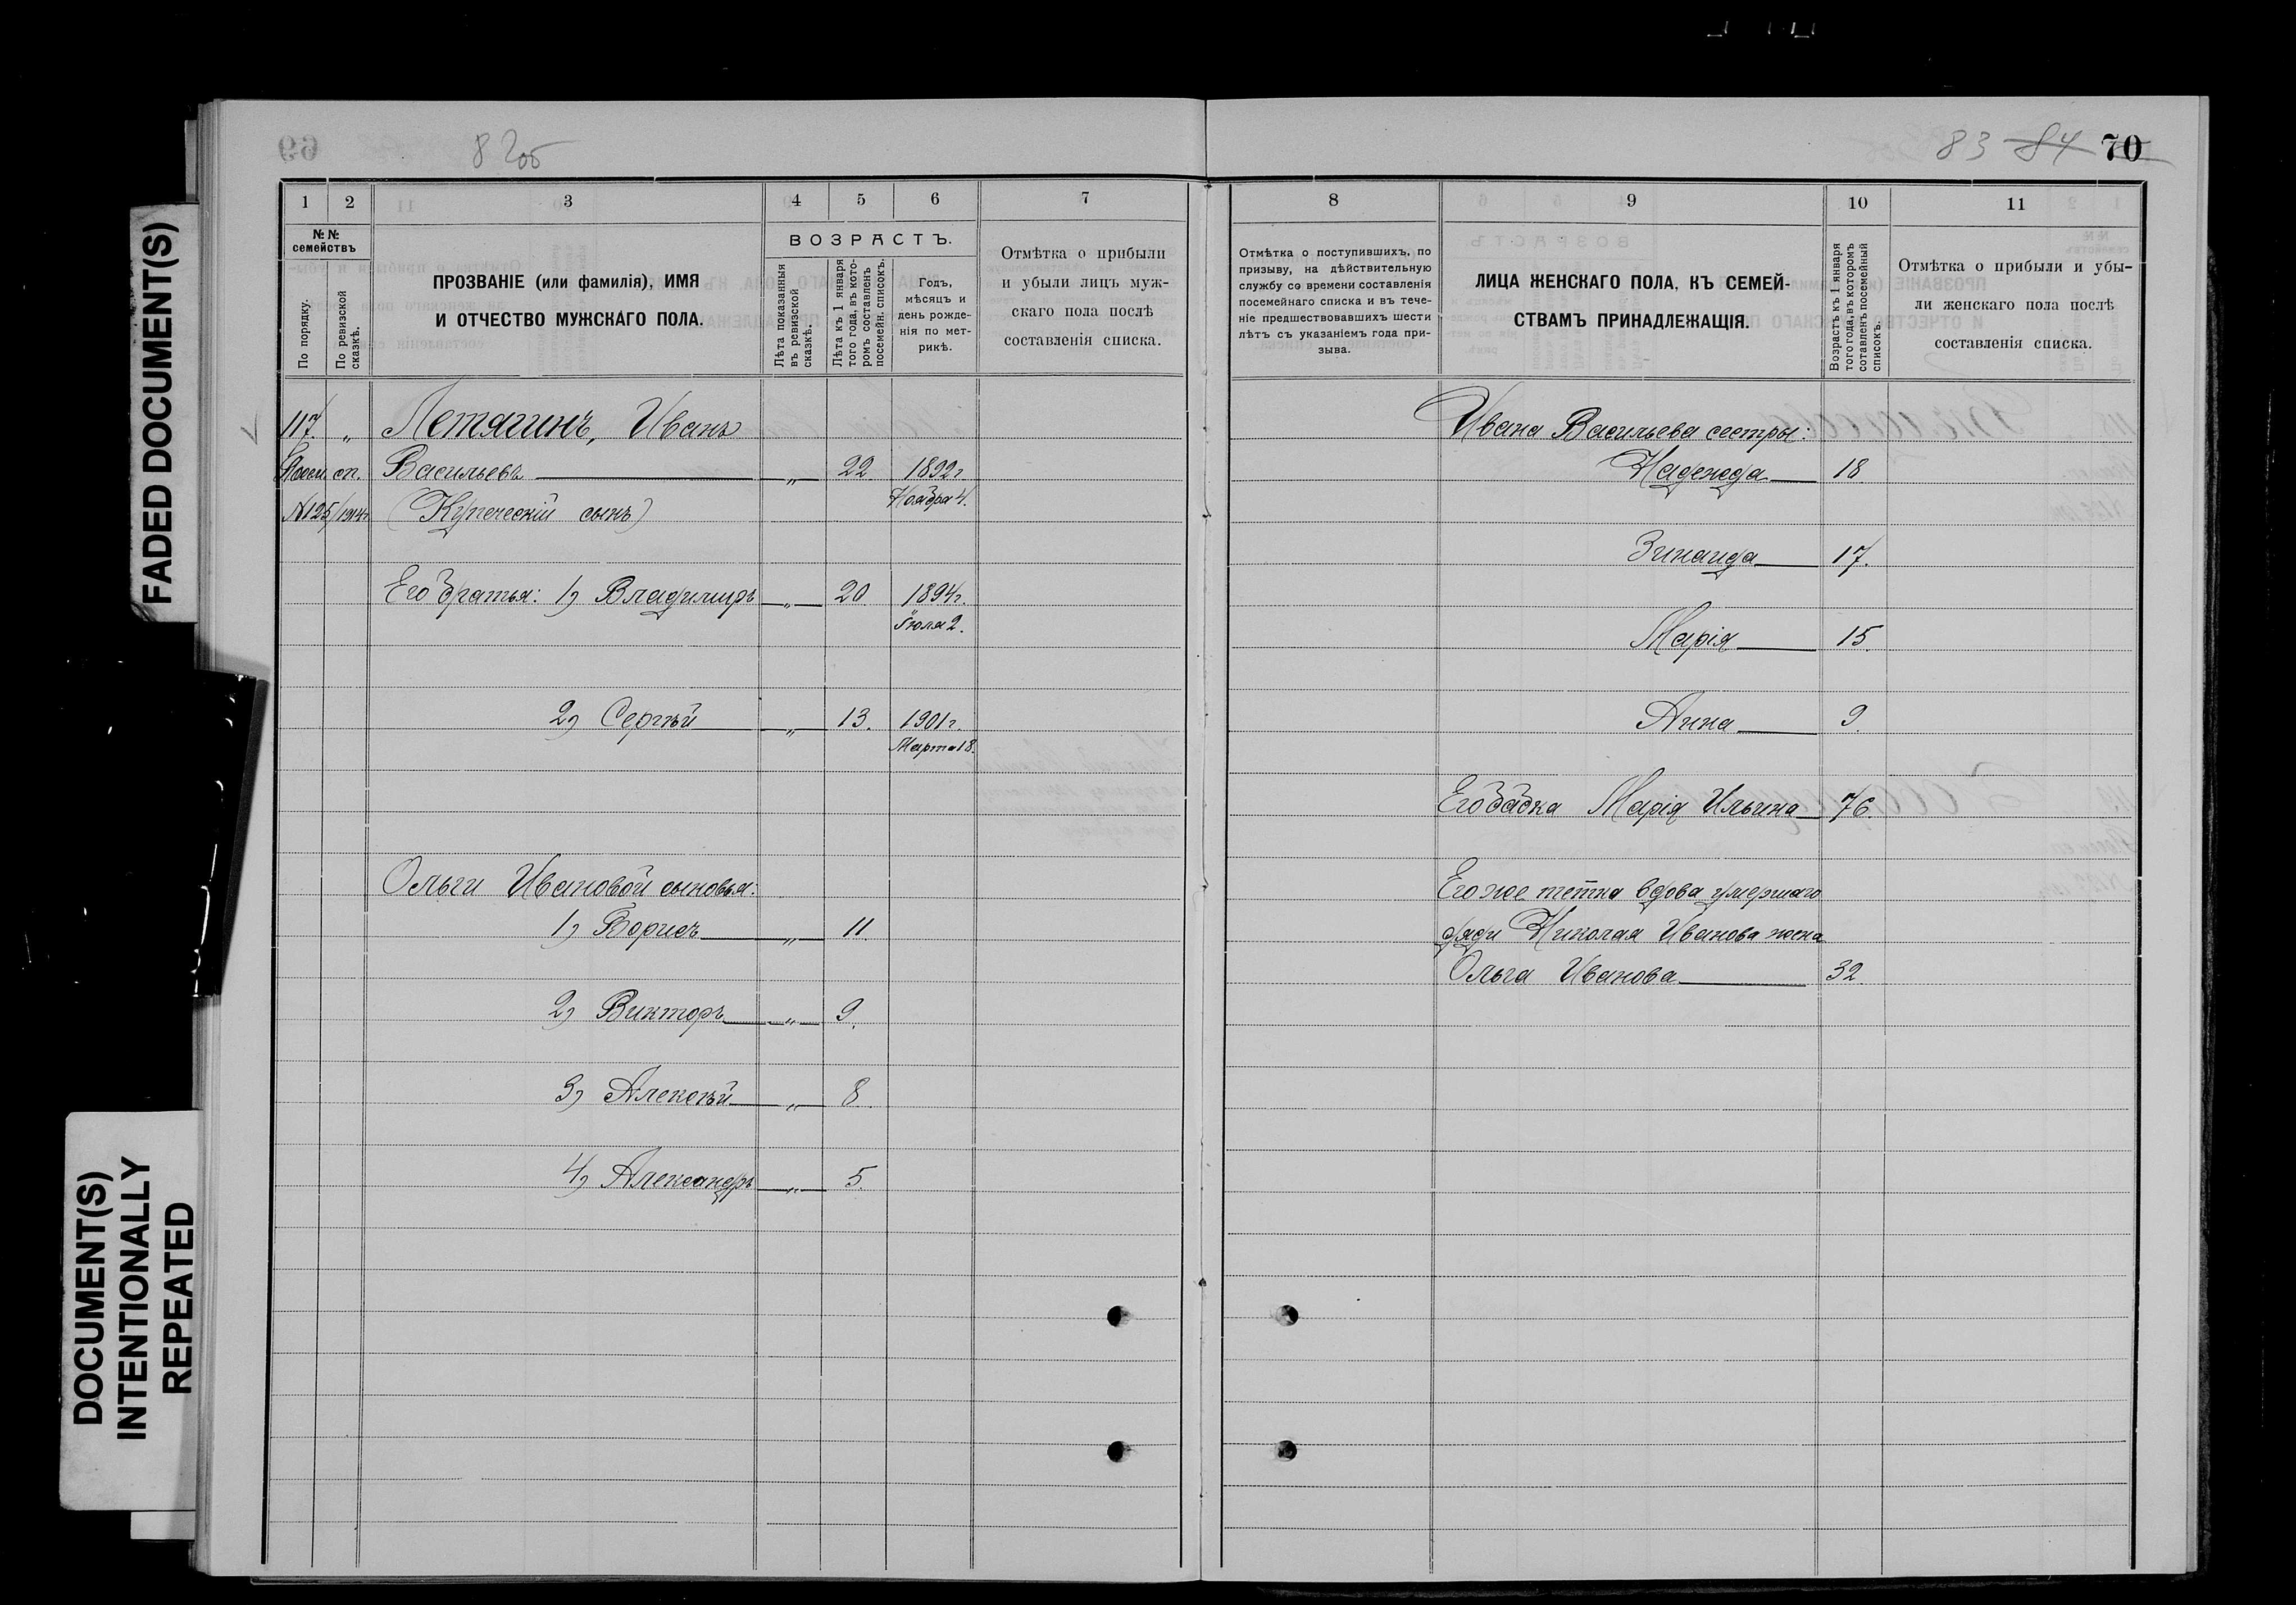 FADED DOCUMENT(S)
DOCUMENT(S)
INTENTIONALLY
REPEATED
82об
1
2
3
4
5
6
7
№№
семействъ
По порядку.
По ревизской
сказкѣ.
ПРОЗВАНІЕ (или фамилія), ИМЯ
И ОТЧЕСТВО МУЖСКАГО ПОЛА.
ВОЗРАСТЪ.
Лѣта показанныя
въ ревизской
сказкѣ.
Лѣта къ 1 января
того года, въ кото-
ромъ составленъ
посемейн. списокъ.
Годъ,
мѣсяцъ и
день рожде-
нія по мет-
рикѣ.
Отмѣтка о прибыли
и убыли лицъ муж-
скаго пола послѣ
составленія списка.
117. „ Летягинъ, Иванъ
Посем. сп. Васильевъ „ 22. 1892 г.
Ноября 4.
№125/1914г. (Купеческій сынъ)
Его братья: 1) Владимиръ „ 20. 1894 г.
Іюля 2.
2) Сергѣй „ 13. 1901 г.
Марта 18.
Ольги Ивановой сыновья:
1) Борисъ „ 11.
2) Викторъ „ 9.
3) Алексѣй „ 8.
4) Александръ „ 5.
83 84 70
8
9
10
11
Отмѣтка о поступившихъ, по
призыву, на дѣйствительную
службу со времени составленія
посемейнаго списка и въ тече-
ніе предшествовавшихъ шести
лѣтъ съ указаніемъ года при-
зыва.
ЛИЦА ЖЕНСКАГО ПОЛА, КЪ СЕМЕЙ-
СТВАМЪ ПРИНАДЛЕЖАЩІЯ.
Возрастъ къ 1 января
того года, въ которомъ
составленъ посемейный
списокъ.
Отмѣтка о прибыли и убы-
ли женскаго пола послѣ
составленія списка.
Ивана Васильева сестры:
Надежда 18.
Зинаида 17.
Марія 15.
Анна 9.
Его бабка Марія Ильина 76.
Его же тетка вдова умершаго
дяди Николая Иванова жена
Ольга Иванова 32.